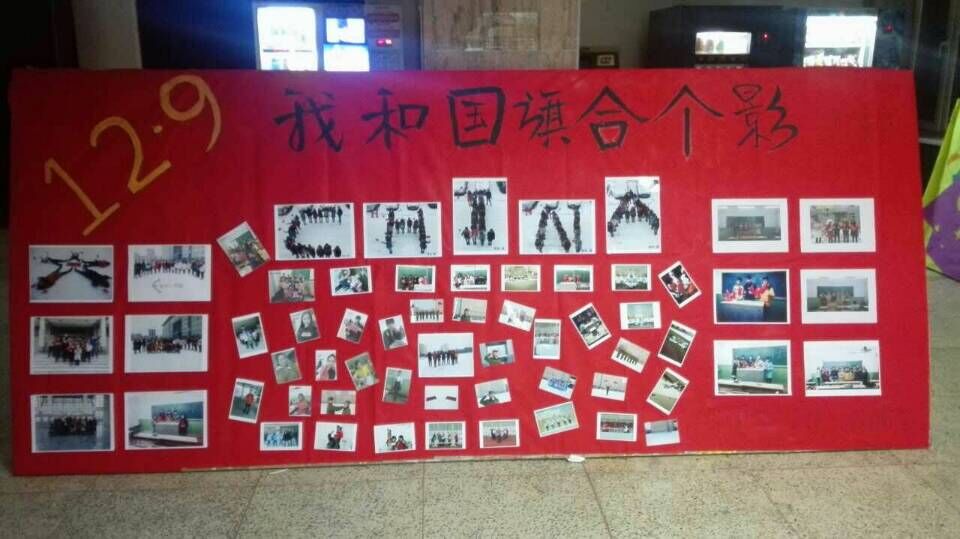 12.9 我和国旗合个影
CHINA